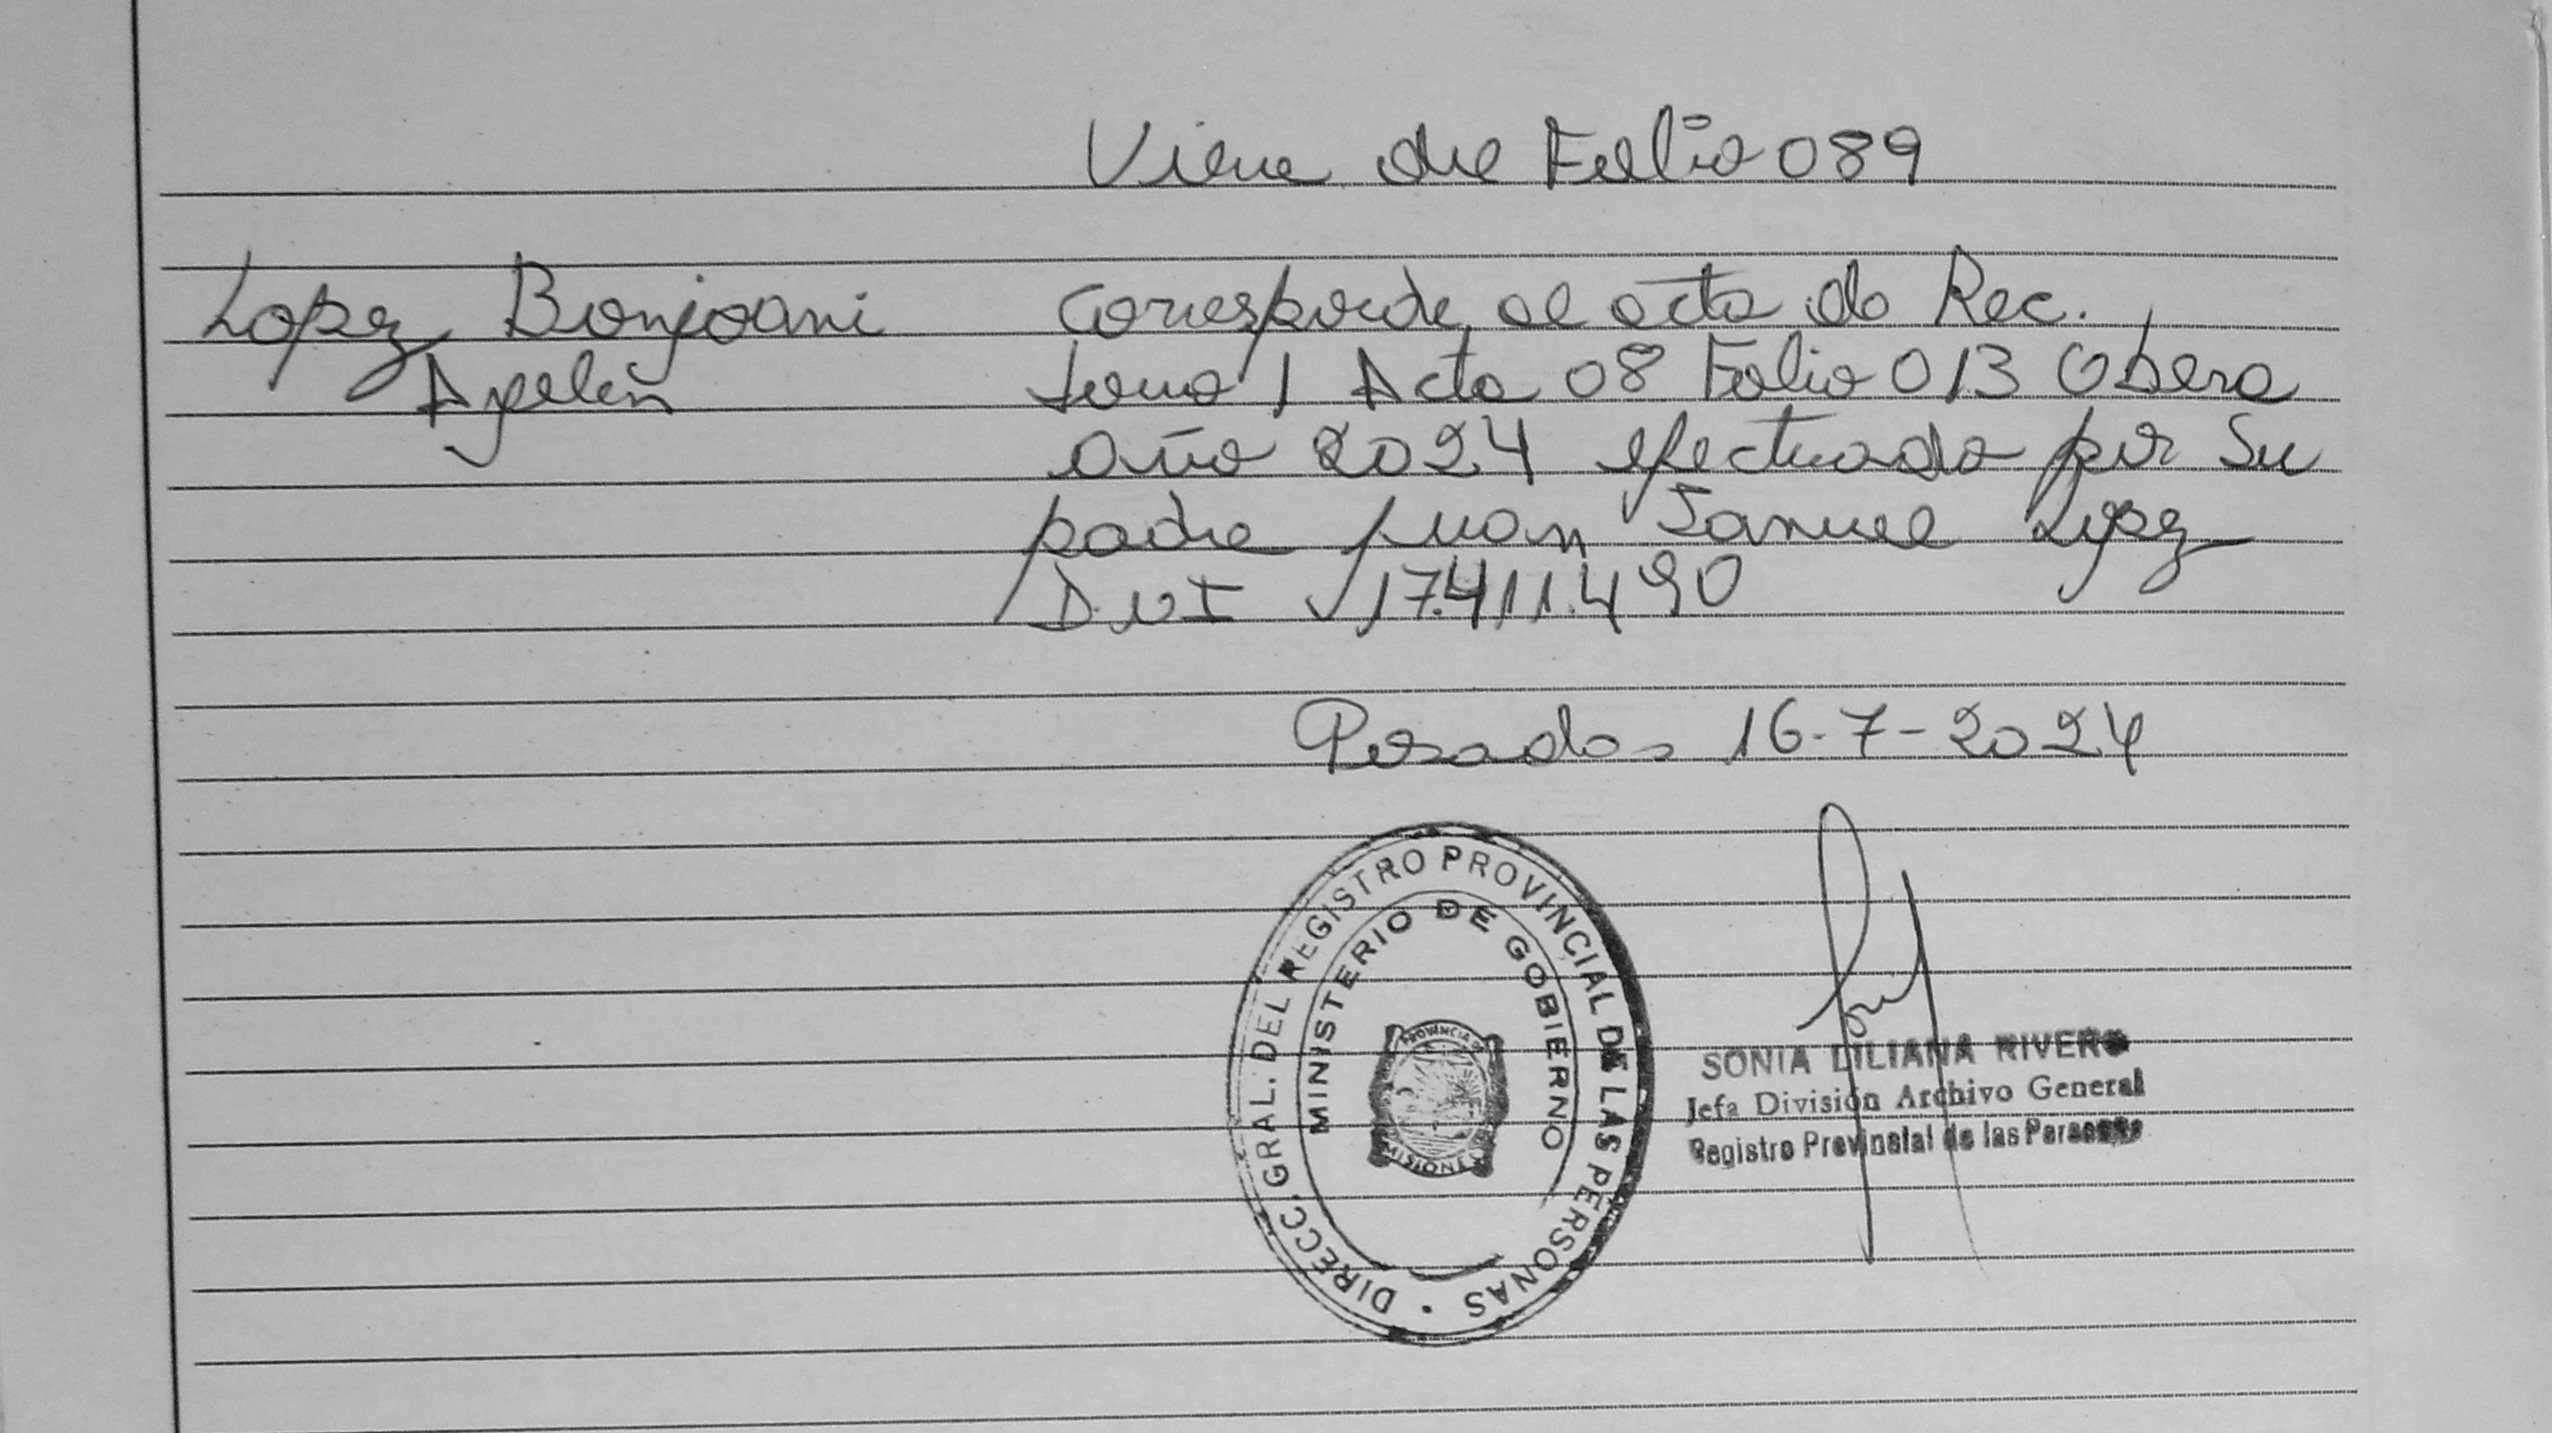 Viene de Folio 089
Lopez Bonjoani
Ayelen
Corresponde al acta de Rec.
tomo 1 Acta 08 Folio 013 Obera
año 2024 efectuada por su
padre Juan Samuel Lopez
D.N.I 17.411.490
Posadas 16-7-2024
DIRECC. GRAL. DEL REGISTRO PROVINCIAL DE LAS PERSONAS
MINISTERIO DE GOBIERNO
PROVINCIA DE
MISIONES
SONIA LILIANA RIVERO
Jefa División Archivo General
Registro Provincial de las Personas